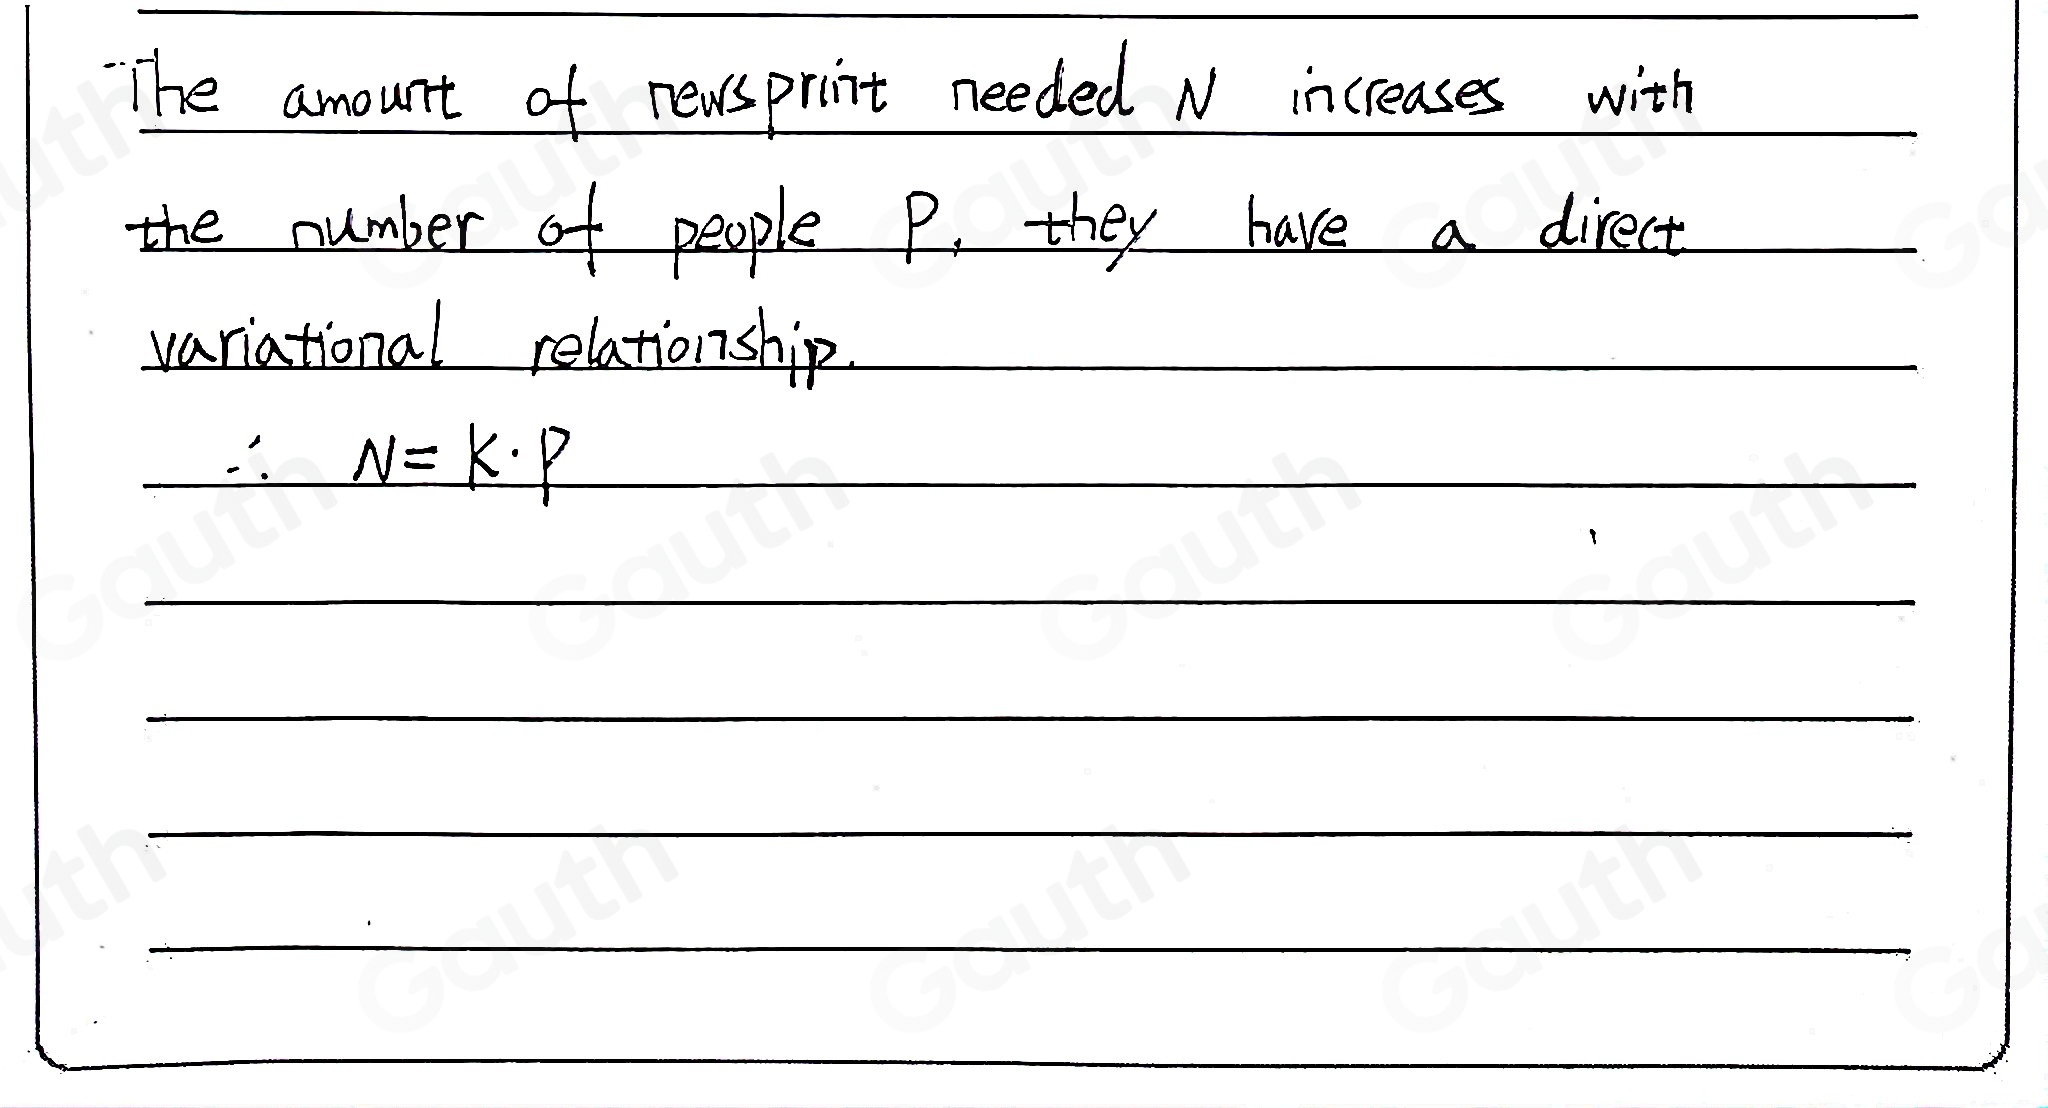 The amount of newsprint needed N increases with
the number of people P, they have a direct
variational relationship.
∴ N = k · p